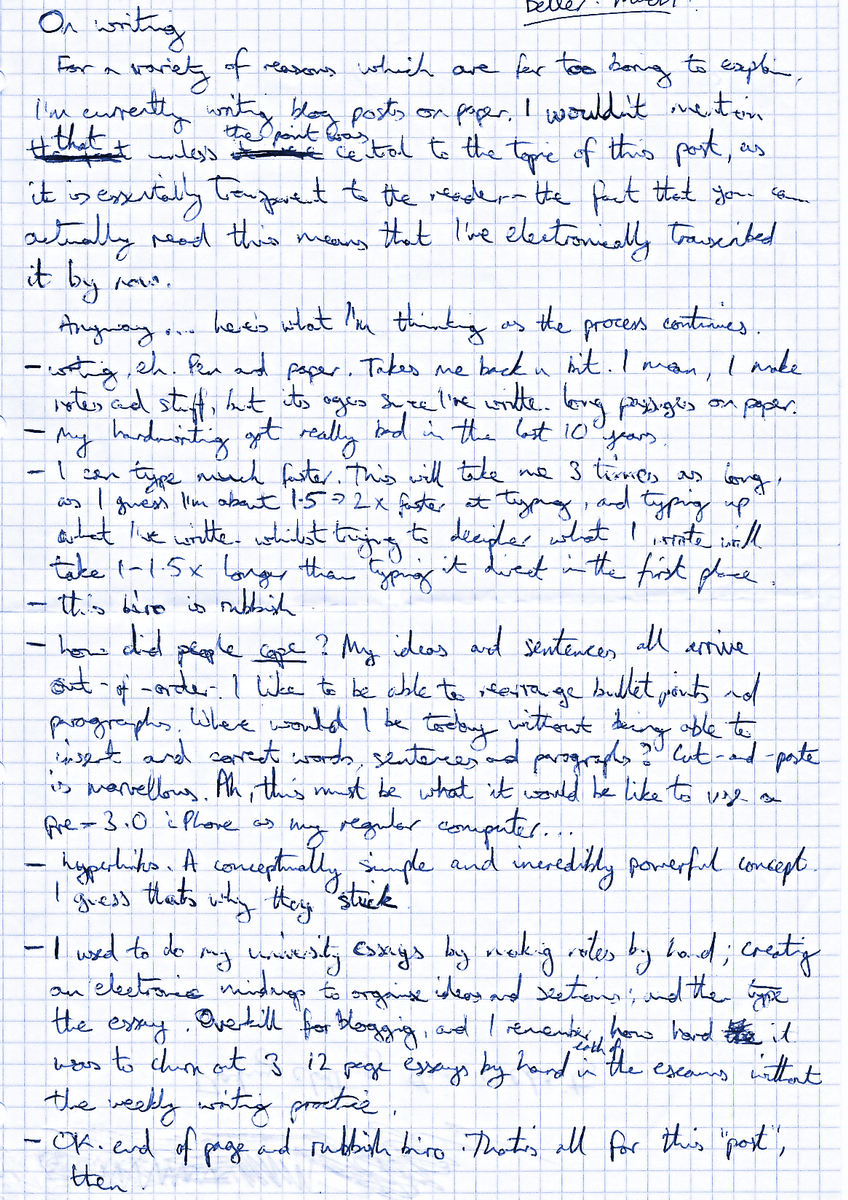 better. much!
On writing
For a variety of reasons which are far too boring to explain,
I'm currently writing blog posts on paper. I wouldn't mention
that unless the point was central to the topic of this post, as
it is essentially transparent to the reader - the fact that you can
actually read this means that I've electronically transcribed
it by now.
Anyway... here's what I'm thinking as the process continues.
- writing, eh. Pen and paper. Takes me back a bit. I mean, I make
notes and stuff, but its ages since I've written long passages on paper.
- My handwriting got really bad in the last 10 years.
- I can type much faster. This will take me 3 times as long,
as I guess I'm about 1.5 → 2x faster at typing, and typing up
what I've written whilst trying to decipher what I wrote will
take 1-1.5x longer than typing it direct in the first place.
- this biro is rubbish
- how did people cope? My ideas and sentences all arrive
out-of-order. I like to be able to rearrange bullet points and
paragraphs. Where would I be today without being able to
insert and correct words, sentences and paragraphs? Cut-and-paste
is marvellous. Ah, this must be what it would be like to use a
pre-3.0 iPhone as my regular computer...
- hyperlinks. A conceptually simple and incredibly powerful concept.
I guess thats why they stuck
- I used to do my university essays by making notes by hand; creating
an electronic mindmap to organise ideas and sections; and then type
the essay. Overkill for blogging, and I remember how hard it
was to churn out 3 12 page essays by hand in each of the exams without
the weekly writing practice.
- OK. end of page and rubbish biro. That's all for this "post",
then.